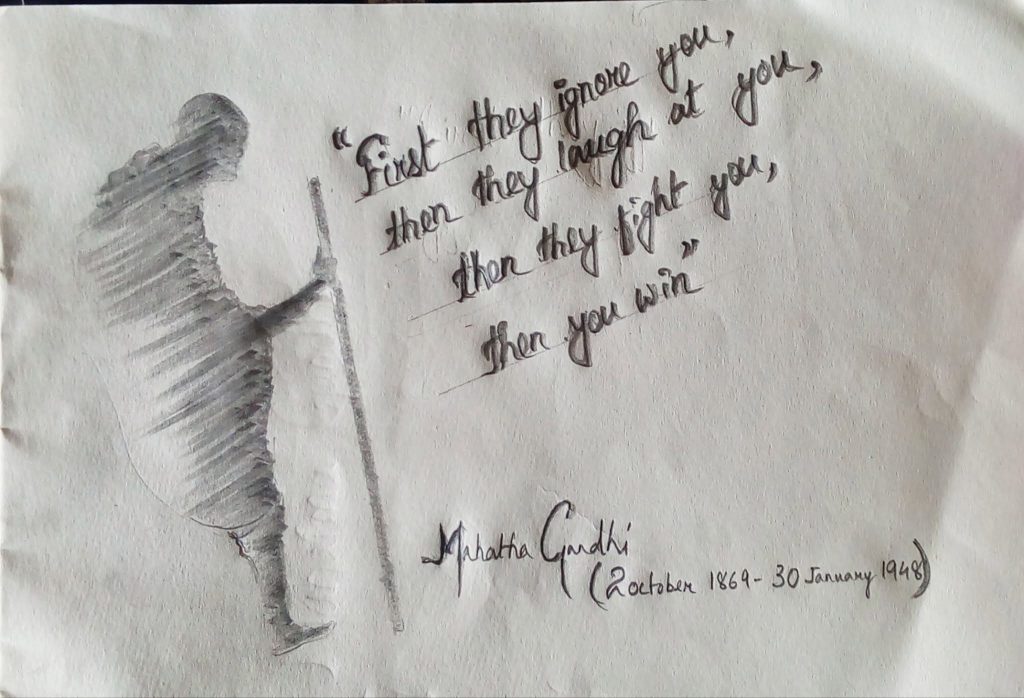 "First they ignore you,
then they laugh at you,
then they fight you,
then you win"
Mahatha Gandhi
(2 october 1869 - 30 January 1948)